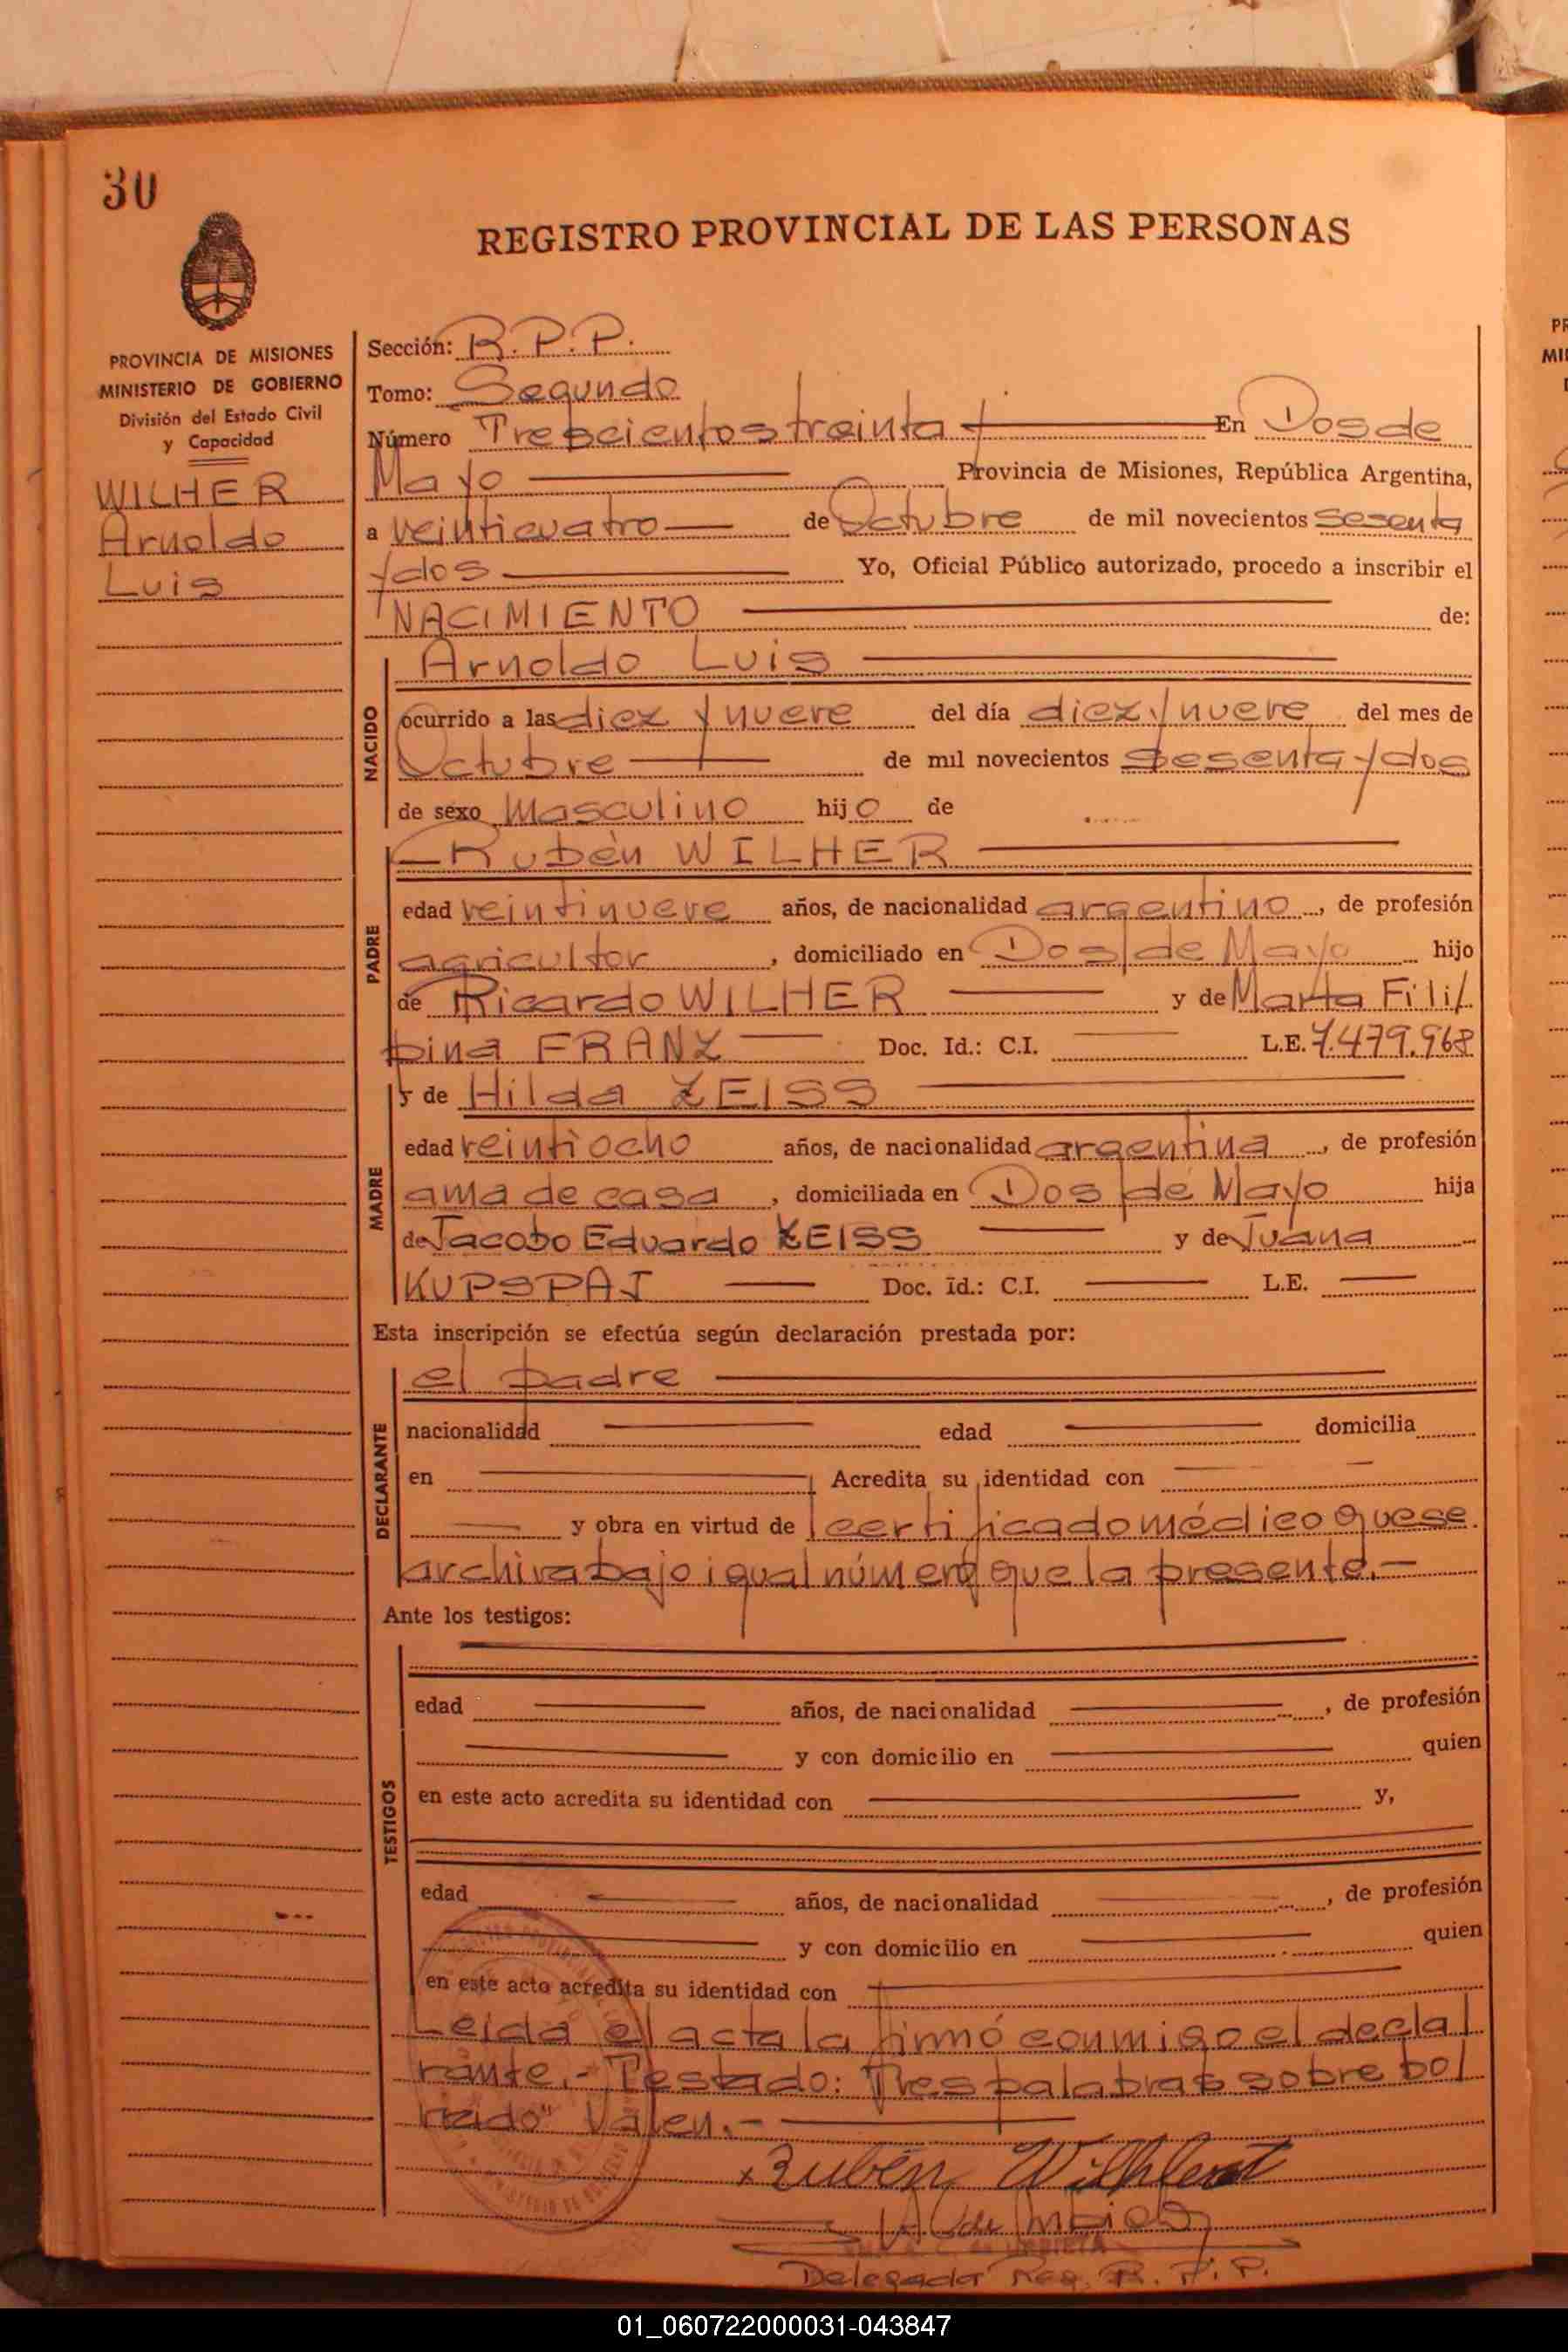 30
REGISTRO PROVINCIAL DE LAS PERSONAS
PROVINCIA DE MISIONES
MINISTERIO DE GOBIERNO
División del Estado Civil
y Capacidad
WILHER
Arnoldo
Luis
Sección: R.P.P.
Tomo: Segundo
Número Trescientos treinta y En Dos de
Mayo Provincia de Misiones, República Argentina,
a veinticuatro de Octubre de mil novecientos sesenta
y dos Yo, Oficial Público autorizado, procedo a inscribir el
NACIMIENTO de:
NACIDO
Arnoldo Luis
ocurrido a las diez y nueve del día diez y nueve del mes de
Octubre de mil novecientos sesenta y dos
de sexo Masculino hijo de
PADRE
Rubén WILHER
edad veintinueve años, de nacionalidad argentino, de profesión
agricultor, domiciliado en Dos de Mayo hijo
de Ricardo WILHER y de Marta Fili/
pina FRANZ Doc. Id.: C.I. L.E. 7.479.968
MADRE
y de Hilda ZEISS
edad veintiocho años, de nacionalidad argentina, de profesión
ama de casa, domiciliada en Dos de Mayo hija
de Jacobo Eduardo ZEISS y de Juana
KUPSPAJ Doc. Id.: C.I. L.E.
Esta inscripción se efectúa según declaración prestada por:
DECLARANTE
el padre
nacionalidad edad domicilia
en Acredita su identidad con
y obra en virtud de certificado médico que se
archiva bajo igual número que la presente.-
Ante los testigos:
TESTIGOS
edad años, de nacionalidad, de profesión
y con domicilio en quien
en este acto acredita su identidad con y,
edad años, de nacionalidad, de profesión
y con domicilio en quien
en este acto acredita su identidad con
Leida el acta la firmó conmigo el decla/
rante.- Testado: Tres palabras sobre bo/
rrado" Valen.-
Rubén
Delegada Reg. R. P. P.
01_060722000031-043847